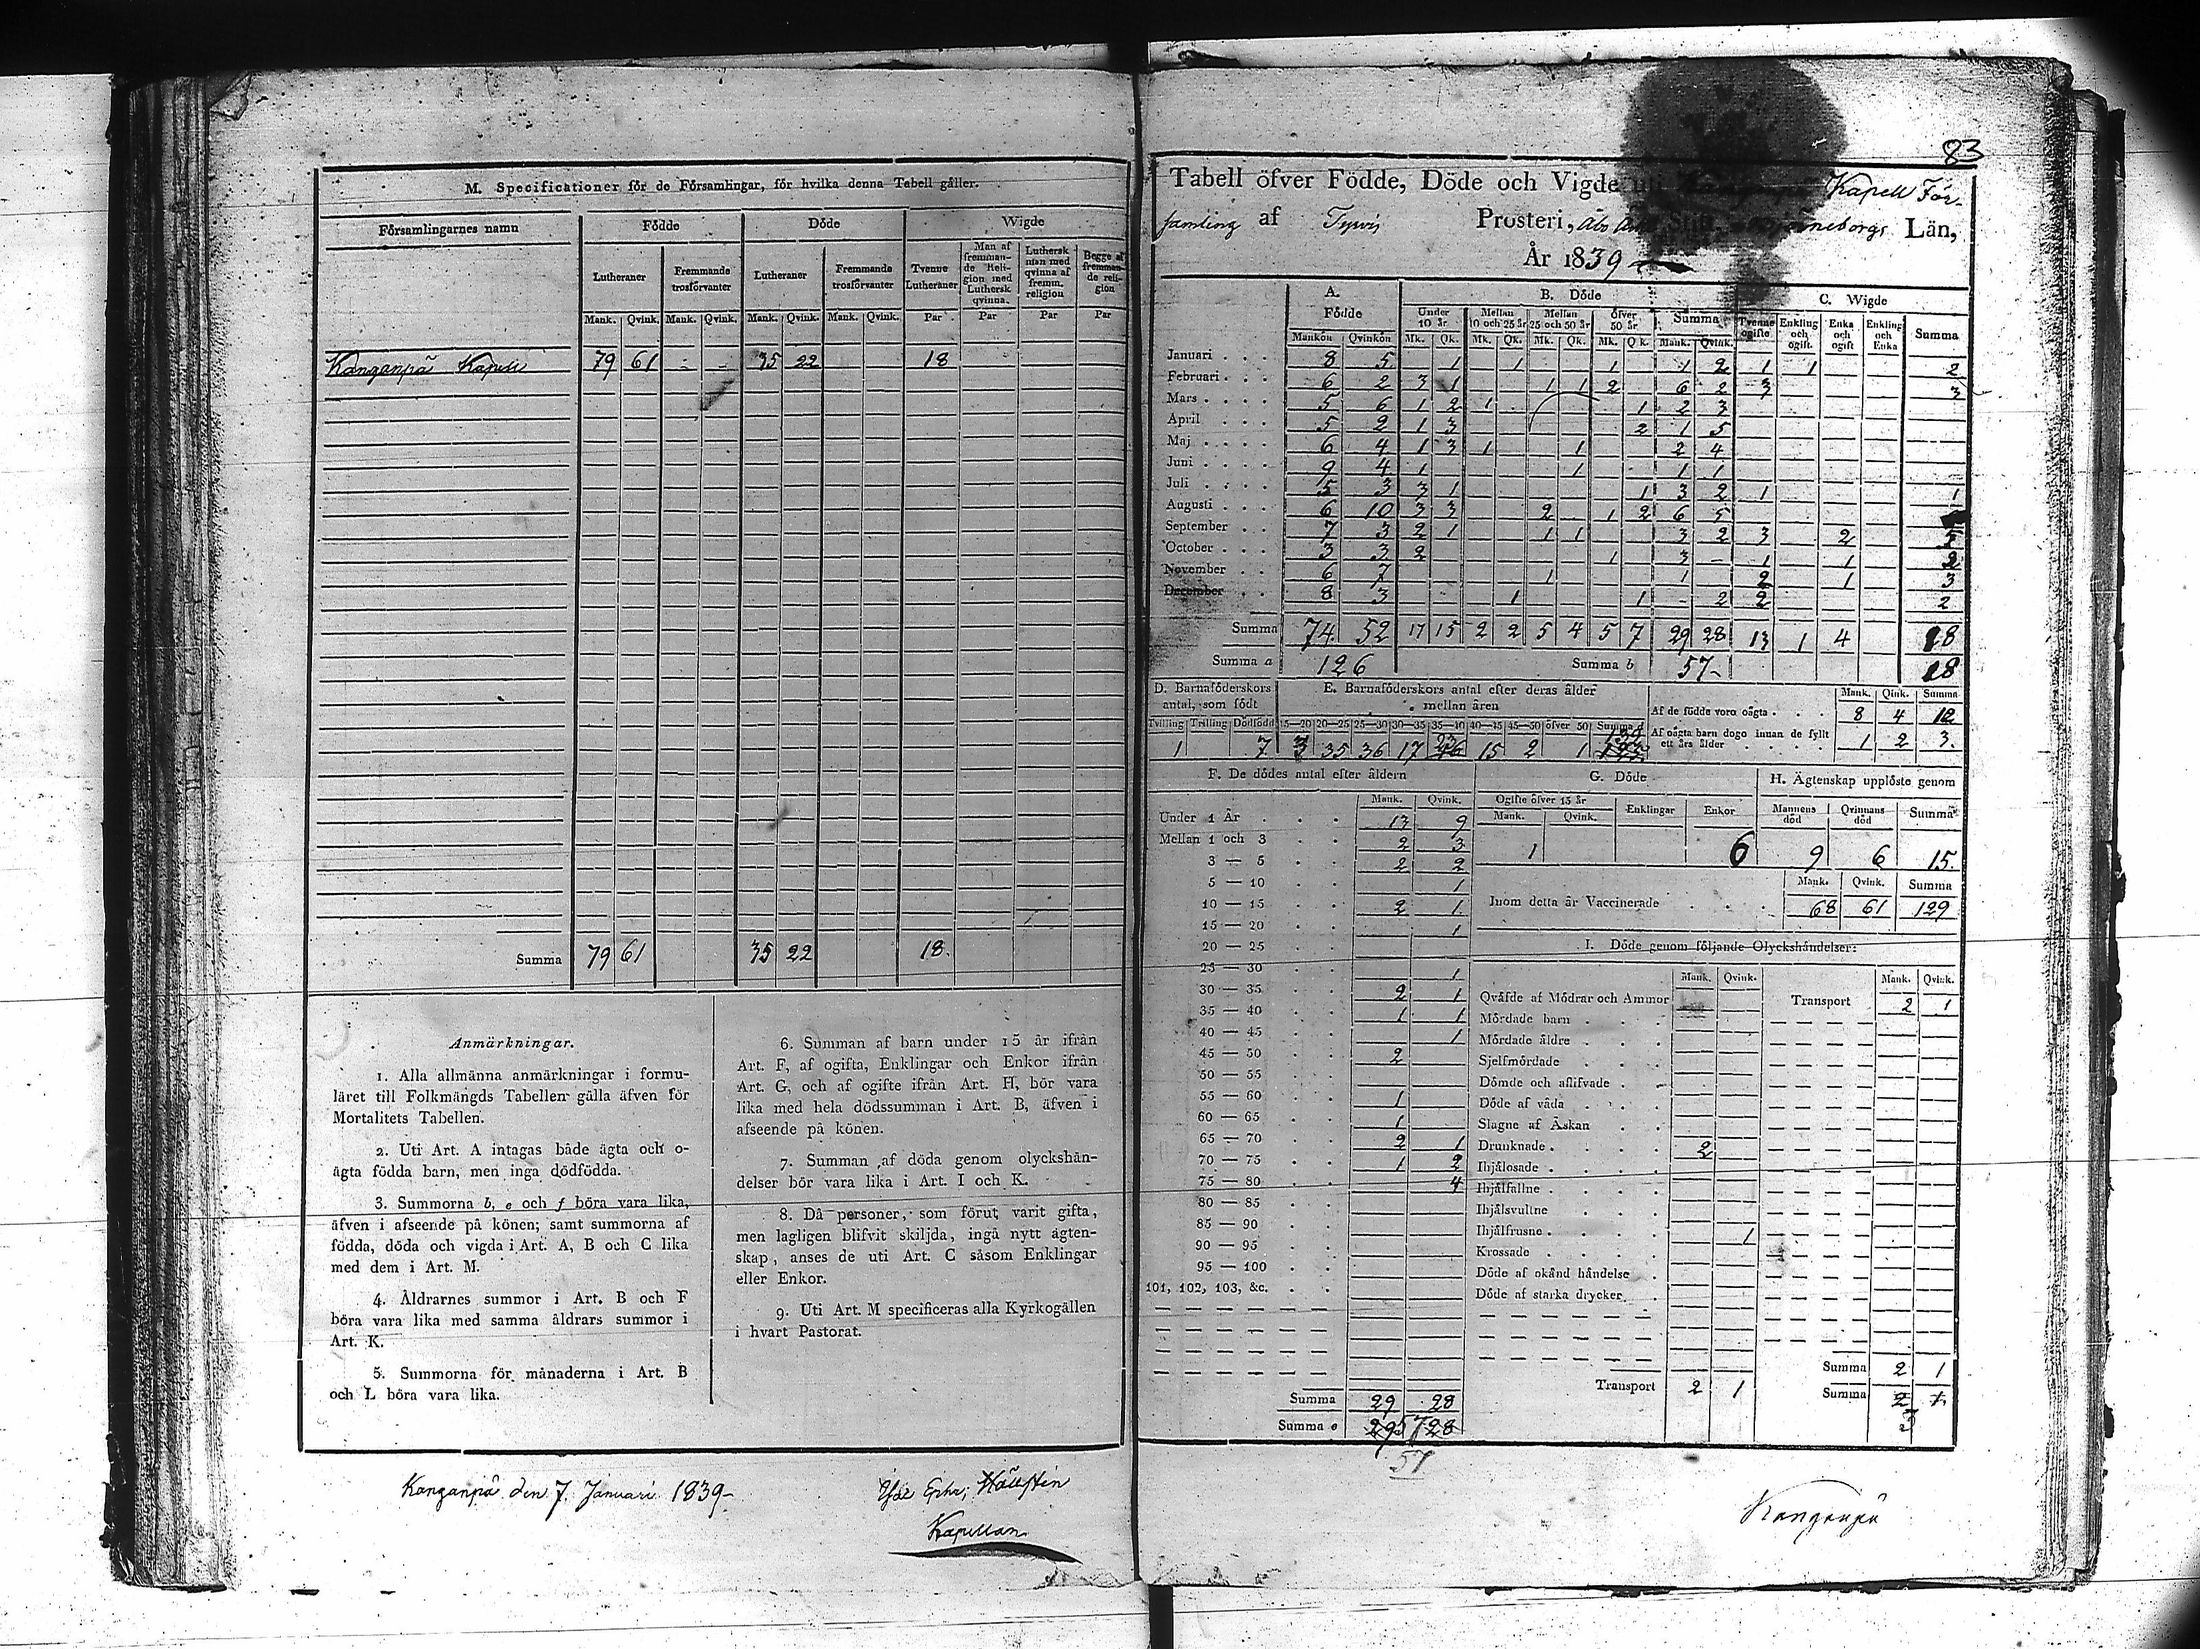 M. Specificationer för de Församlingar, för hvilka denna Tabell gäller.
Församlingarnes namn Födde Döde Wigde
Lutheraner Fremmande trosförvanter Lutheraner Fremmande trosförvanter Tvenne Lutheraner Man af fremmande Religion med Luthersk qvinna. Luthersk man med qvinna af fremm. religion Begge af fremmande religion
Mank. Qvink. Mank. Qvink. Mank. Qvink. Mank. Qvink. Par Par Par Par
Kanganpä Kapell 79 61 - - 35 22 18
Summa 79 61 35 22 18.
Anmärkningar.
1. Alla allmänna anmärkningar i formu-
läret till Folkmängds Tabellen gälla äfven för
Mortalitets Tabellen.
2. Uti Art. A intagas både ägta och o-
ägta födda barn, men inga dödfödda.
3. Summorna b, e och f böra vara lika,
äfven i afseende på könen; samt summorna af
födda, döda och vigda i Art. A, B och C lika
med dem i Art. M.
4. Åldrarnes summor i Art. B och F
böra vara lika med samma åldrars summor i
Art. K.
5. Summorna för månaderna i Art. B
och L böra vara lika.
6. Summan af barn under 15 år ifrån
Art. F, af ogifta, Enklingar och Enkor ifrån
Art. G, och af ogifte ifrån Art. H, bör vara
lika med hela dödssumman i Art. B, äfven i
afseende på könen.
7. Summan af döda genom olyckshän-
delser bör vara lika i Art. I och K.
8. Då personer, som förut varit gifta,
men lagligen blifvit skiljda, ingå nytt ägten-
skap, anses de uti Art. C såsom Enklingar
eller Enkor.
9. Uti Art. M specificeras alla Kyrkogällen
i hvart Pastorat.
Kanganpä den 7. Januari 1839-
Kapellan
83
Tabell öfver Födde, Döde och Vigde uti Kapell För-
samling af Tyrvis Prosteri, Åbo Stift, Björneborgs Län,
År 1839
A. Födde B. Döde C. Wigde
Under 10 år Mellan 10 och 25 år Mellan 25 och 50 år öfver 50 år Summa Tvenne ogifte Enkling och ogift. Enka och ogift Enkling och Enka Summa
Mankön Qvinkön Mk. Qk. Mk. Qk. Mk. Qk. Mk. Qk. Mank. Qvink.
Januari 8 5 1 1 1 1 2 1 1 2
Februari 6 2 3 1 1 1 2 6 2 3 3
Mars 5 6 1 2 1 1 2 3
April 5 2 1 3 2 1 5
Maj 6 4 1 3 1 1 2 4
Juni 9 4 1 1 1 1
Juli 5 3 3 1 1 3 2 1 1
Augusti 6 10 3 3 2 1 2 6 5
September 7 3 2 1 1 1 3 2 3 2 5
October 3 3 2 1 3 - 1 1 2
November 6 7 1 1 2 1 3
December 8 3 1 1 - 2 2 2
Summa 74 52 17 15 2 2 5 4 5 7 29 28 13 1 4 18
Summa a 126 Summa b 57- 18
D. Barnaföderskors antal, som födt E. Barnaföderskors antal efter deras ålder mellan åren
Mank. Qink. Summa
Tvilling Trilling Dödfödd 15—20 20—25 25—30 30—35 35—40 40—45 45—50 öfver 50 Summa d
1 7 3 35 36 17 23 15 2 1
Af de födde voro oägta 8 4 12
Af oägta barn dogo innan de fyllt ett års ålder 1 2 3.
F. De dödes antal efter åldern
Mank. Qvink.
Under 1 År 13 9
Mellan 1 och 3 2 3
3 — 5 2 2
5 — 10 1
10 — 15 2 1
15 — 20 1
20 — 25
25 — 30 1
30 — 35 2 1
35 — 40 1 1
40 — 45 1
45 — 50 2
50 — 55
55 — 60 1
60 — 65 1
65 — 70 2 1
70 — 75 1 2
75 — 80 4
80 — 85
85 — 90
90 — 95
95 — 100
101, 102, 103, &c.
Summa 29 28
Summa e 29 57 28
57
G. Döde
Ogifte öfver 15 år Enklingar Enkor
Mank. Qvink.
1 6
H. Ägtenskap upplöste genom
Mannens död Qvinnans död Summa
9 6 15.
Mank. Qvink. Summa
Inom detta år Vaccinerade 68 61 129
I. Döde genom följande Olyckshändelser:
Mank. Qvink. Mank. Qvink.
Qväfde af Mödrar och Ammor Transport 2 1
Mördade barn
Mördade äldre
Sjelfmördade
Dömde och aflifvade
Döde af våda
Slagne af Åskan
Drunknade 2
Ihjälosade
Ihjälfallne
Ihjälsvultne
Ihjälfrusne 1
Krossade
Döde af okänd händelse
Döde af starka drycker
Transport 2 1
Summa 2 1
Summa 2 1
3
Kanganpä